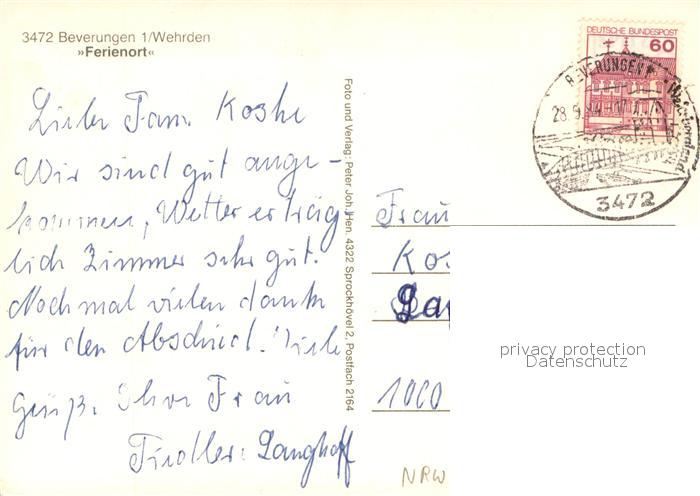 3472 Beverungen 1/Wehrden
»Ferienort«
Liebe Fam. Koshe
Wir sind gut ange-
kommen, Wetter erträg
lich Zimmer sehr gut.
Nochmal vielen dank
für den Abschied. Viele
Grüß. Ihre Frau
Langhoff
Foto und Verlag: Peter Joh. Hen. 4322 Sprockhövel 2, Postfach 2164
DEUTSCHE BUNDESPOST
60
BEVERUNGEN 1
28.9.
Weserbergland
3472
Frau
Kos
1000
NRW
privacy protection
Datenschutz